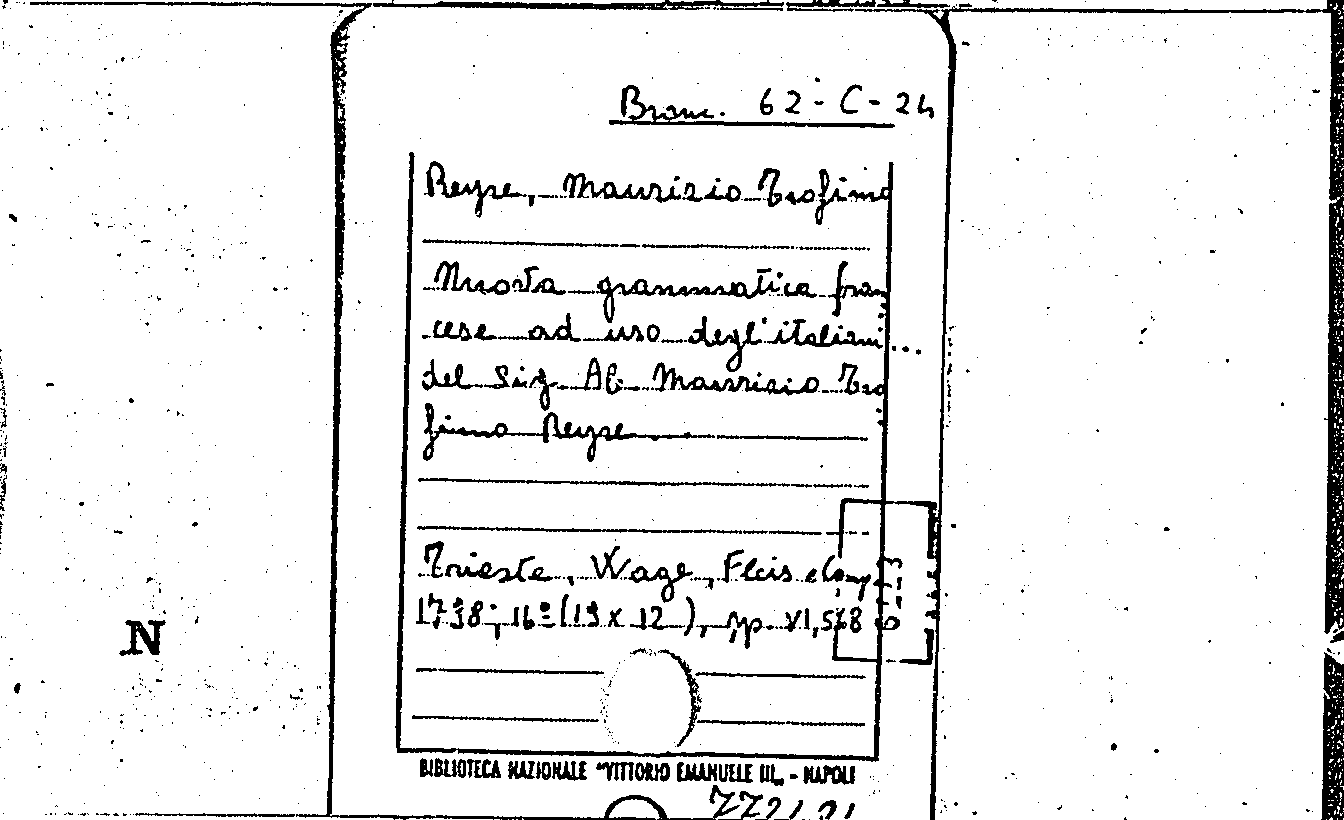 Branc. 62-C-24
Reyre, Maurizio Teofimo
Nuova grammatica fran
cese ad uso degl'italiani...
del Sig. Ab. Maurizio Teo
fimo Reyre...
Trieste, Wage, Fleis e Comp.
1738; 16º (19 x 12), pp. VI, 568
N
BIBLIOTECA NAZIONALE "VITTORIO EMANUELE III„ - NAPOLI